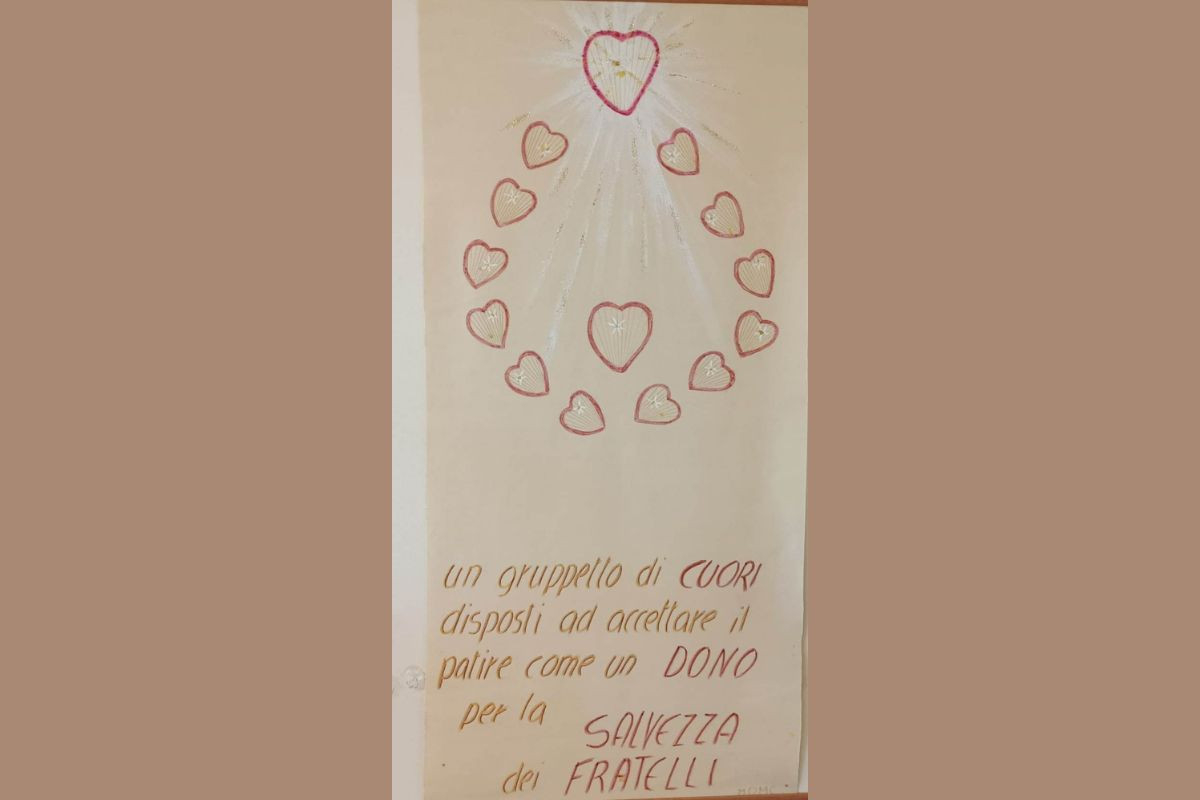 un gruppetto di CUORI
disposti ad accettare il
patire come un DONO
per la SALVEZZA
dei FRATELLI